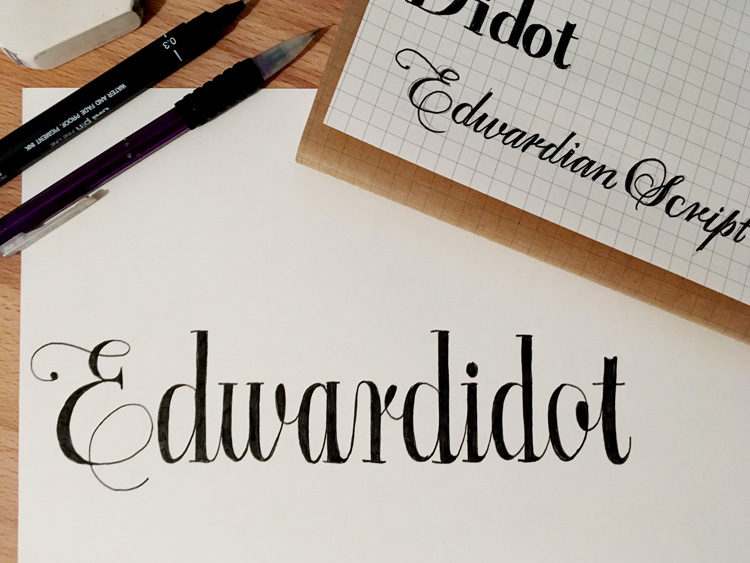 Didot
Edwardian Script
0.3
WATER AND FADE PROOF, PIGMENT INK
uni pin FINE LINE
Edwardidot